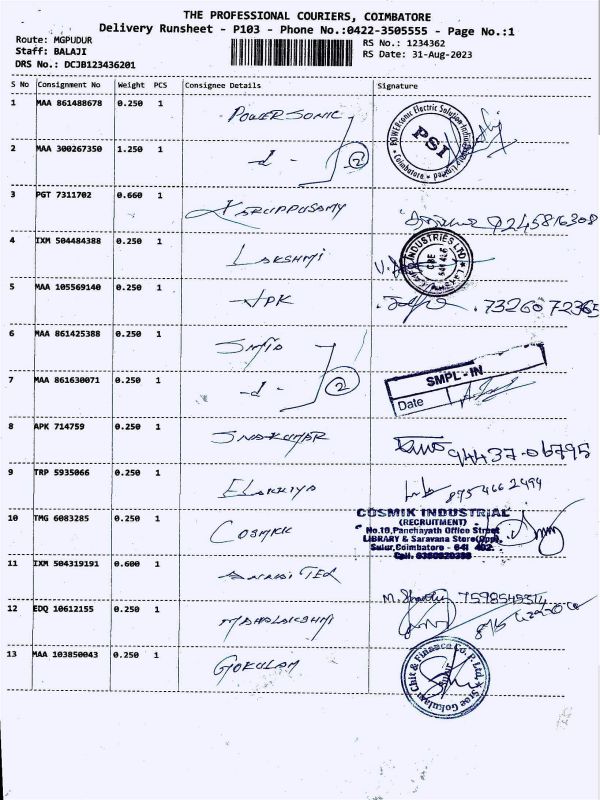 THE PROFESSIONAL COURIERS, COIMBATORE
Delivery Runsheet - P103 - Phone No.:0422-3505555 - Page No.:1
Route: MGPUDUR
Staff: BALAJI
DRS No.: DCJB123436201
RS No.: 1234362
RS Date: 31-Aug-2023
S No Consignment No Weight PCS Consignee Details Signature
1 MAA 861488678 0.250 1 POWER SONIC
POWERsonic Electric Solution India Private Limited * Coimbatore *
PSI
2 MAA 300267350 1.250 1 -d- 2
3 PGT 7311702 0.660 1 KARUPPUSAMY 9245816308
4 IXM 504484388 0.250 1 LAKSHMI
INDUSTRIES LTD
CBE
5 MAA 105569140 0.250 1 JPK 7326072365
6 MAA 861425388 0.250 1
7 MAA 861630071 0.250 1 -d- 2
SMPL - IN
Date
8 APK 714759 0.250 1 94437-06795
9 TRP 5935066 0.250 1 ELAKKIYA 875 466 2494
10 TMG 6083285 0.250 1 COSMIK
COSMIK INDUSTRIAL
(RECRUITMENT)
No.18, Panchayath Office Street
LIBRARY & Saravana Store(Opp),
Sulur, Coimbatore - 641 402.
11 IXM 504319191 0.600 1
12 EDQ 10612155 0.250 1 MAHALAKSHMI
13 MAA 103850043 0.250 1 GOKULAM
Sree Gokulam Chit & Finance Co. P. Ltd.